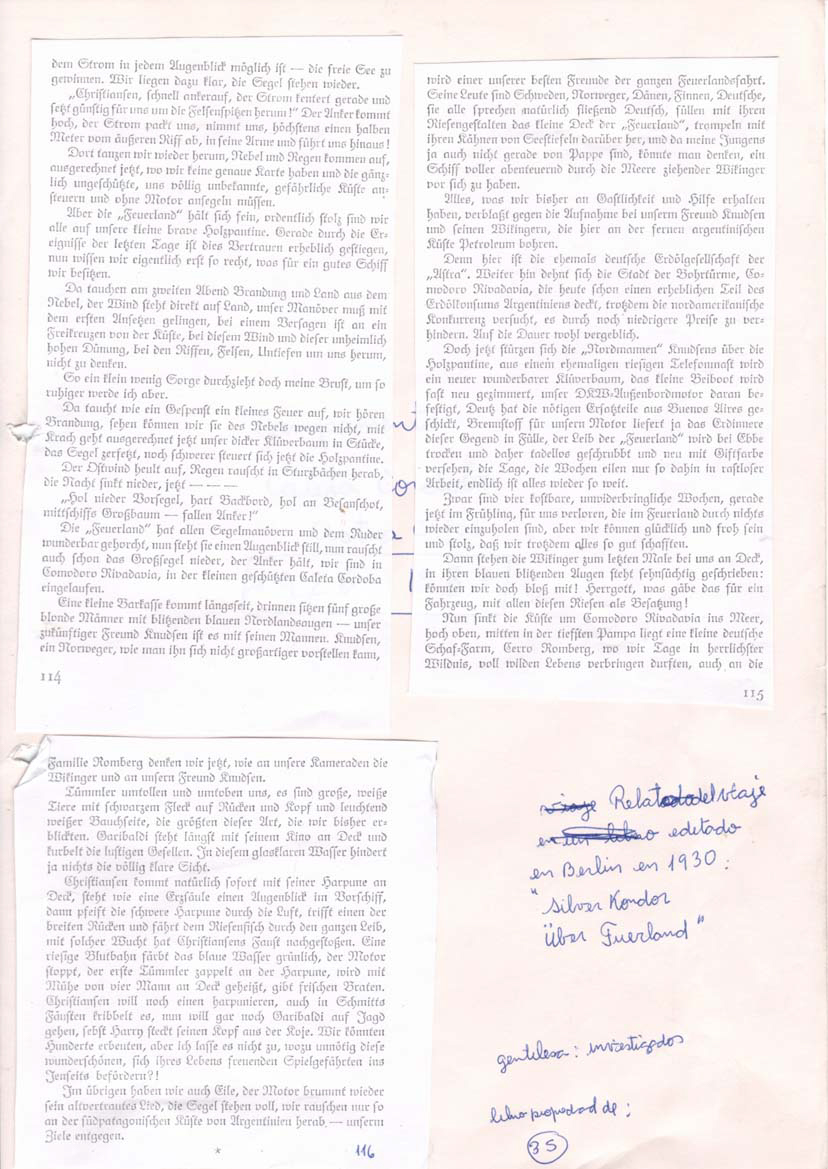 dem Strom in jedem Augenblick möglich ist — die freie See zu
gewinnen. Wir liegen dazu klar, die Segel stehen wieder.
„Christiansen, schnell ankerauf, der Strom kentert gerade und
setzt günstig für uns um die Felsenspitzen herum!“ Der Anker kommt
hoch, der Strom packt uns, nimmt uns, höchstens einen halben
Meter vom äußeren Riff ab, in seine Arme und führt uns hinaus!
Dort tanzen wir wieder herum, Nebel und Regen kommen auf,
ausgerechnet jetzt, wo wir keine genaue Karte haben und die gänz-
lich ungeschützte, uns völlig unbekannte, gefährliche Küste an-
steuern und ohne Motor ansegeln müssen.
Aber die „Feuerland“ hält sich fein, ordentlich stolz sind wir
alle auf unsere kleine brave Holzpantine. Gerade durch die Er-
eignisse der letzten Tage ist dies Vertrauen erheblich gestiegen,
nun wissen wir eigentlich erst so recht, was für ein gutes Schiff
wir besitzen.
Da tauchen am zweiten Abend Brandung und Land aus dem
Nebel, der Wind steht direkt auf Land, unser Manöver muß mit
dem ersten Ansetzen gelingen, bei einem Versagen ist an ein
Freikreuzen von der Küste, bei diesem Wind und dieser unheimlich
hohen Dünung, bei den Riffen, Felsen, Untiefen um uns herum,
nicht zu denken.
So ein klein wenig Sorge durchzieht doch meine Brust, um so
ruhiger werde ich aber.
Da taucht wie ein Gespenst ein kleines Feuer auf, wir hören
Brandung, sehen können wir sie des Nebels wegen nicht, mit
Krach geht ausgerechnet jetzt unser dicker Klüverbaum in Stücke,
das Segel zerfetzt, noch schwerer steuert sich jetzt die Holzpantine.
Der Ostwind heult auf, Regen rauscht in Sturzbächen herab,
die Nacht sinkt nieder, jetzt — — —
„Hol nieder Vorsegel, hart Backbord, hol an Besanschot,
mittschiffs Großbaum — fallen Anker!“
Die „Feuerland“ hat allen Segelmanövern und dem Ruder
wunderbar gehorcht, nun steht sie einen Augenblick still, nun rauscht
auch schon das Großsegel nieder, der Anker hält, wir sind in
Comodoro Rivadavia, in der kleinen geschützten Caleta Cordoba
eingelaufen.
Eine kleine Barkasse kommt längsseit, drinnen sitzen fünf große
blonde Männer mit blitzenden blauen Nordlandsaugen — unser
zukünftiger Freund Knudsen ist es mit seinen Mannen. Knudsen,
ein Norweger, wie man ihn sich nicht großartiger vorstellen kann,
114
wird einer unserer besten Freunde der ganzen Feuerlandsfahrt.
Seine Leute sind Schweden, Norweger, Dänen, Finnen, Deutsche,
sie alle sprechen natürlich fließend Deutsch, füllen mit ihren
Riesengestalten das kleine Deck der „Feuerland“, trampeln mit
ihren Kähnen von Seestiefeln darüber her, und da meine Jungens
ja auch nicht gerade von Pappe sind, könnte man denken, ein
Schiff voller abenteuernd durch die Meere ziehender Wikinger
vor sich zu haben.
Alles, was wir bisher an Gastlichkeit und Hilfe erhalten
haben, verblaßt gegen die Aufnahme bei unserm Freund Knudsen
und seinen Wikingern, die hier an der fernen argentinischen
Küste Petroleum bohren.
Denn hier ist die ehemals deutsche Erdölgesellschaft der
„Astra“. Weiter hin dehnt sich die Stadt der Bohrtürme, Co-
modoro Rivadavia, die heute schon einen erheblichen Teil des
Erdölkonsums Argentiniens deckt, trotzdem die nordamerikanische
Konkurrenz versucht, es durch noch niedrigere Preise zu ver-
hindern. Auf die Dauer wohl vergeblich.
Doch jetzt stürzen sich die „Nordmannen“ Knudsens über die
Holzpantine, aus einem ehemaligen riesigen Telefonmast wird
ein neuer wunderbarer Klüverbaum, das kleine Beiboot wird
fast neu gezimmert, unser DKW-Außenbordmotor daran be-
festigt, Deutz hat die nötigen Ersatzteile aus Buenos Aires ge-
schickt, Brennstoff für unsern Motor liefert ja das Erdinnere
dieser Gegend in Fülle, der Leib der „Feuerland“ wird bei Ebbe
trocken und daher tadellos geschrubbt und neu mit Giftfarbe
versehen, die Tage, die Wochen eilen nur so dahin in rastloser
Arbeit, endlich ist alles wieder so weit.
Zwar sind vier kostbare, unwiderbringliche Wochen, gerade
jetzt im Frühling, für uns verloren, die im Feuerland durch nichts
wieder einzuholen sind, aber wir können glücklich und froh sein
und stolz, daß wir trotzdem alles so gut schafften.
Dann stehen die Wikinger zum letzten Male bei uns an Deck,
in ihren blauen blitzenden Augen steht sehnsüchtig geschrieben:
könnten wir doch bloß mit! Herrgott, was gäbe das für ein
Fahrzeug, mit allen diesen Riesen als Besatzung!
Nun sinkt die Küste um Comodoro Rivadavia ins Meer,
hoch oben, mitten in der tiefsten Pampa liegt eine kleine deutsche
Schaf-Farm, Cerro Romberg, wo wir Tage in herrlichster
Wildnis, voll wilden Lebens verbringen durften, auch an die
115
Familie Romberg denken wir jetzt, wie an unsere Kameraden die
Wikinger und an unsern Freund Knudsen.
Tümmler umtollen und umtoben uns, es sind große, weiße
Tiere mit schwarzem Fleck auf Rücken und Kopf und leuchtend
weißer Bauchseite, die größten dieser Art, die wir bisher er-
blickten. Garibaldi steht längst mit seinem Kino an Deck und
kurbelt die lustigen Gesellen. In diesem glasklaren Wasser hindert
ja nichts die völlig klare Sicht.
Christiansen kommt natürlich sofort mit seiner Harpune an
Deck, steht wie eine Erzsäule einen Augenblick im Vorschiff,
dann pfeift die schwere Harpune durch die Luft, trifft einen der
breiten Rücken und fährt dem Riesenfisch durch den ganzen Leib,
mit solcher Wucht hat Christiansens Faust nachgestoßen. Eine
riesige Blutbahn färbt das blaue Wasser grünlich, der Motor
stoppt, der erste Tümmler zappelt an der Harpune, wird mit
Mühe von vier Mann an Deck geheißt, gibt frischen Braten.
Christiansen will noch einen harpunieren, auch in Schmitts
Fäusten kribbelt es, nun will gar noch Garibaldi auf Jagd
gehen, selbst Harry steckt seinen Kopf aus der Koje. Wir könnten
Hunderte erbeuten, aber ich lasse es nicht zu, wozu unnötig diese
wunderschönen, sich ihres Lebens freuenden Spielgefährten ins
Jenseits befördern?!
Im übrigen haben wir auch Eile, der Motor brummt wieder
sein altvertrautes Lied, die Segel stehen voll, wir rauschen nur so
an der südpatagonischen Küste von Argentinien herab — unserm
Ziele entgegen.
*
116
Relato del viaje
editado
en Berlin en 1930:
"Silver Kondor
Über Fuerland"
gentilesa: investigados
libro propiedad de:
35